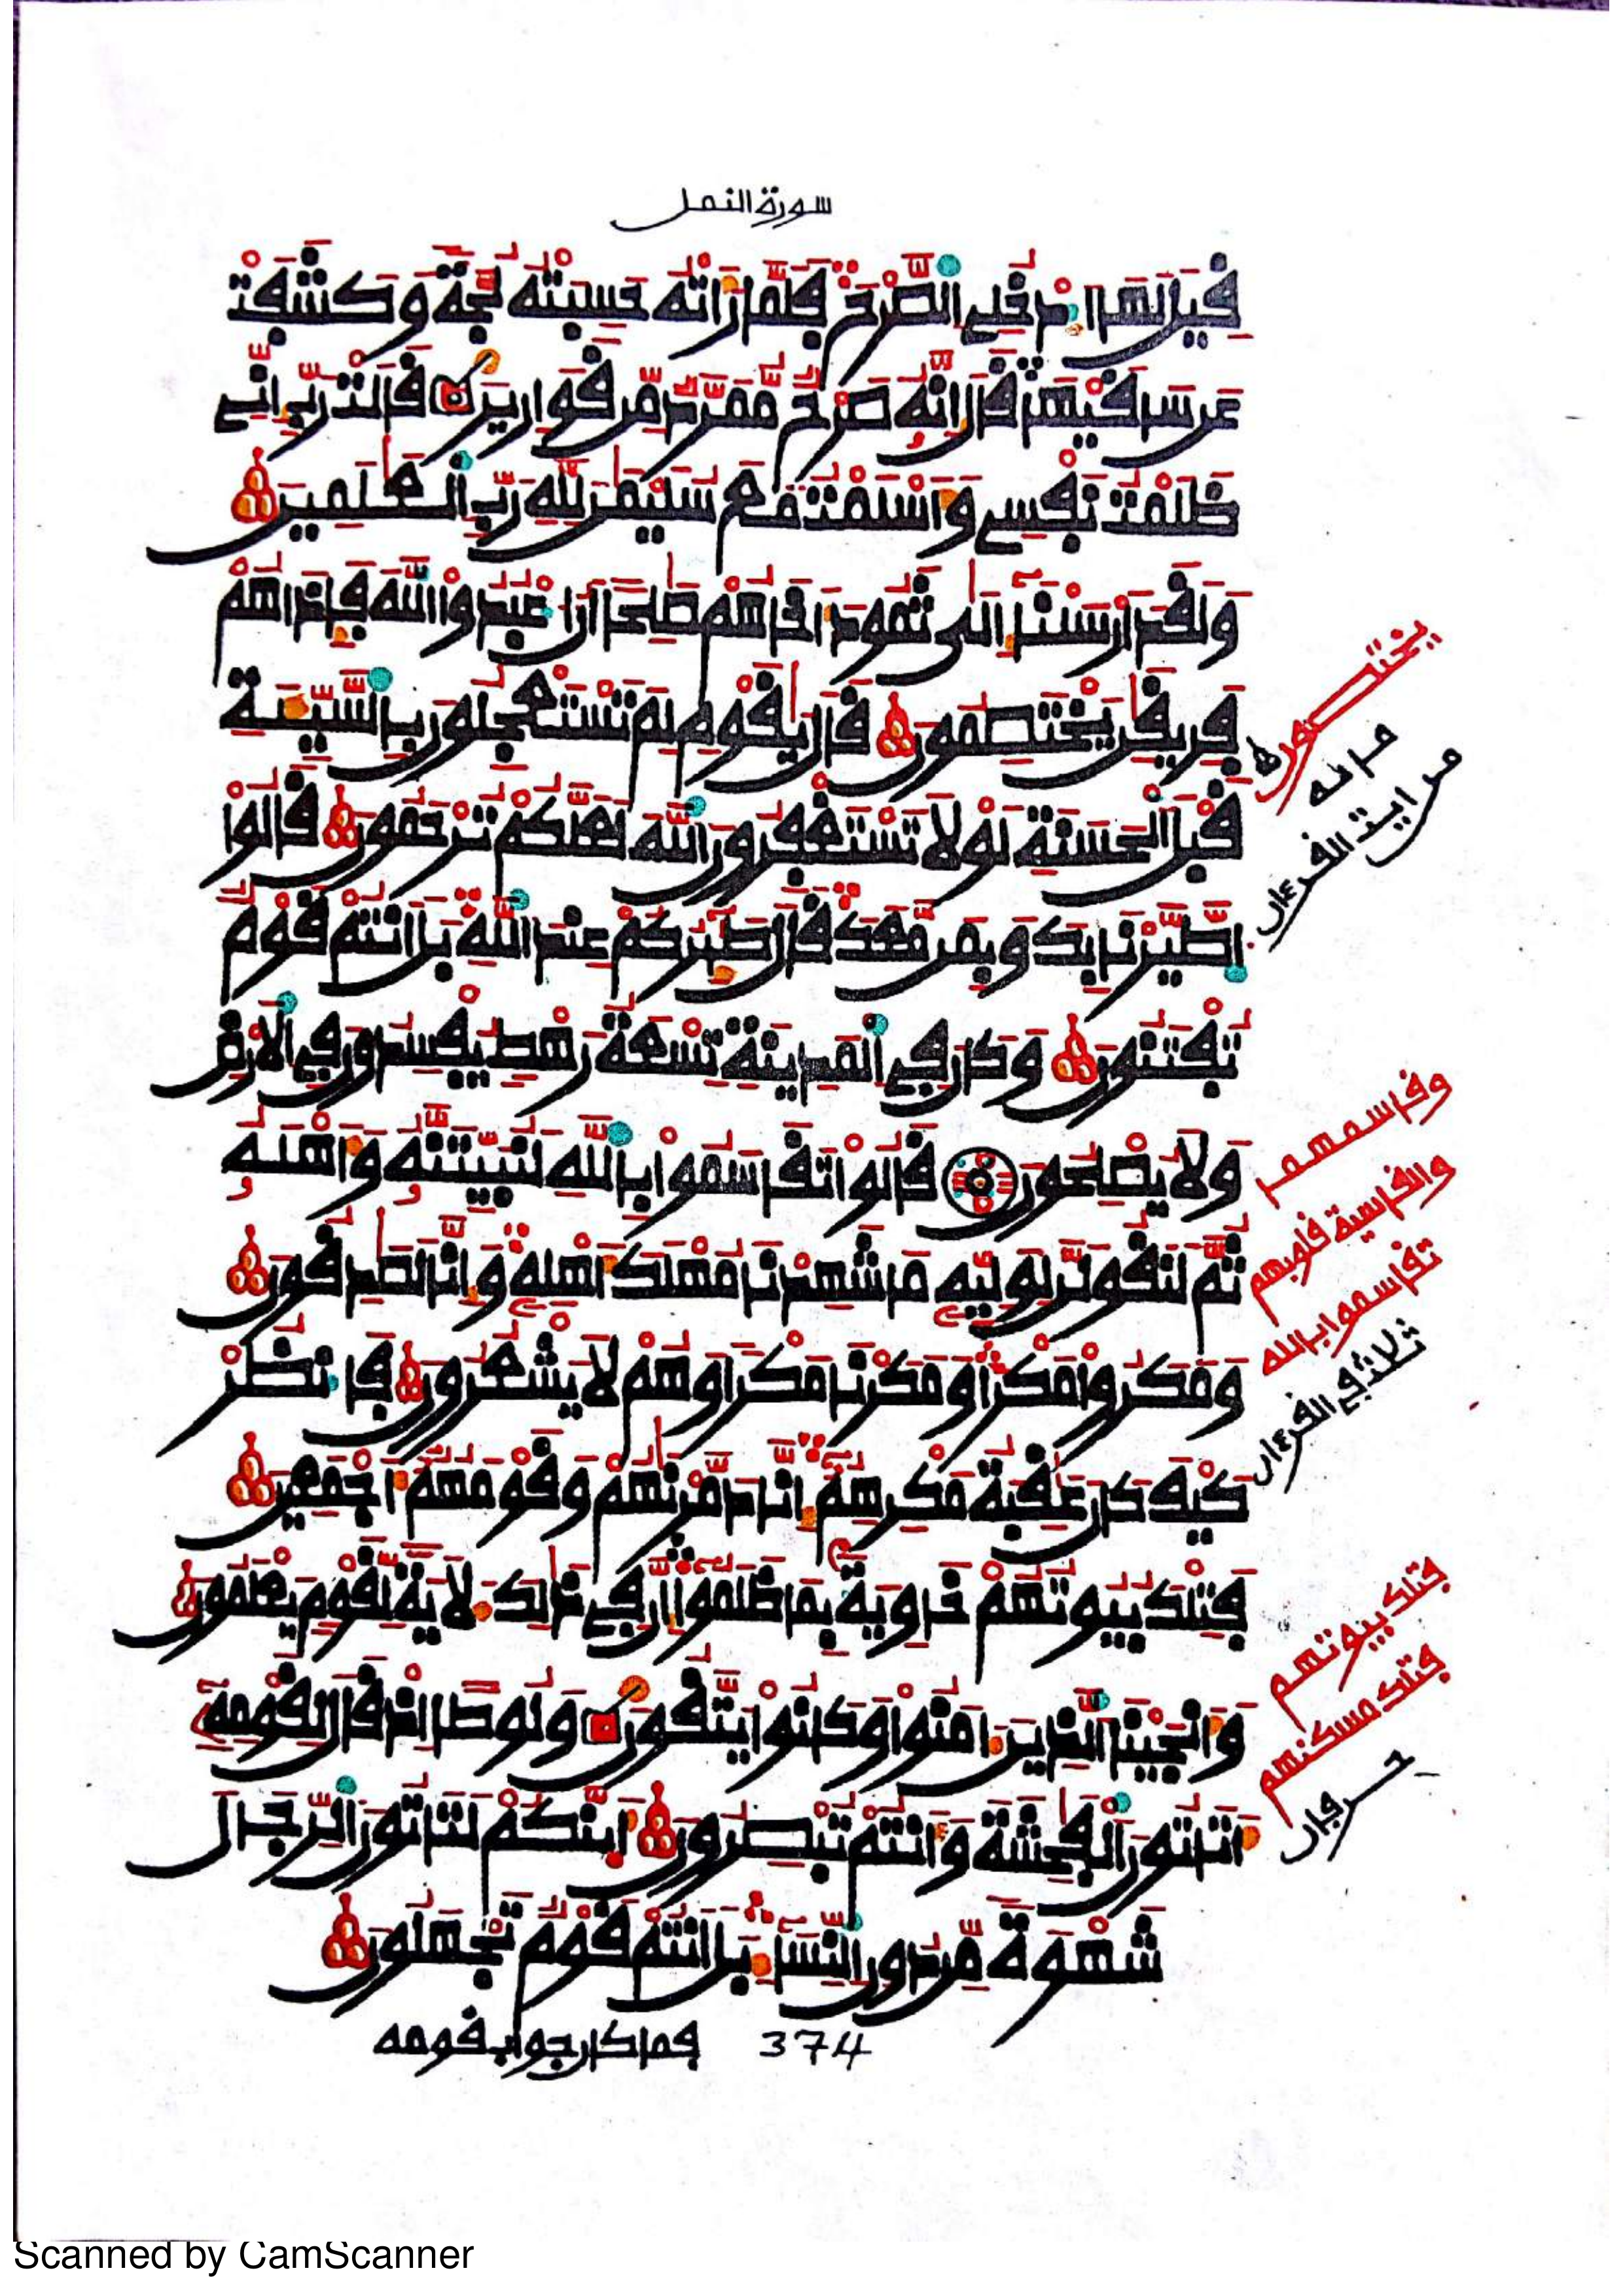 سورة النمل
قيل لها ادخلي الصرح فلما رأته حسبته لجة وكشفت
عن ساقيها قال إنه صرح ممرد من قوارير قالت رب إني
ظلمت نفسي وأسلمت مع سليمن لله رب العلمين
ولقد أرسلنا إلى ثمود أخاهم صلحا أن اعبدوا الله فإذا هم
فريقن يختصمون قال يقوم لم تستعجلون بالسيئة
قبل الحسنة لولا تستغفرون الله لعلكم ترحمون قالوا
اطيرنا بك وبمن معك قال طئركم عند الله بل أنتم قوم
تفتنون وكان في المدينة تسعة رهط يفسدون في الأرض
ولا يصلحون قالوا تقاسموا بالله لنبيتنه وأهله
ثم لنقولن لوليه ما شهدنا مهلك أهله وإنا لصدقون
ومكروا مكرا ومكرنا مكرا وهم لا يشعرون فانظر
كيف كان عقبة مكرهم إنا دمرنهم وقومهم أجمعين
فتلك بيوتهم خاوية بما ظلموا إن في ذلك لآية لقوم يعلمون
وأنجينا الذين ءامنوا وكانوا يتقون ولوطا إذ قال لقومه
أتاتون الفحشة وأنتم تبصرون أئنكم لتاتون الرجال
شهوة من دون النساء بل أنتم قوم تجهلون
فما كان جواب قومه
374
وقاسمهما
والقاسية قلوبهم
تقاسموا بالله
ثلاث في القرءان
فتلك بيوتهم
فتلك مسكنهم
حرفان
Scanned by CamScanner